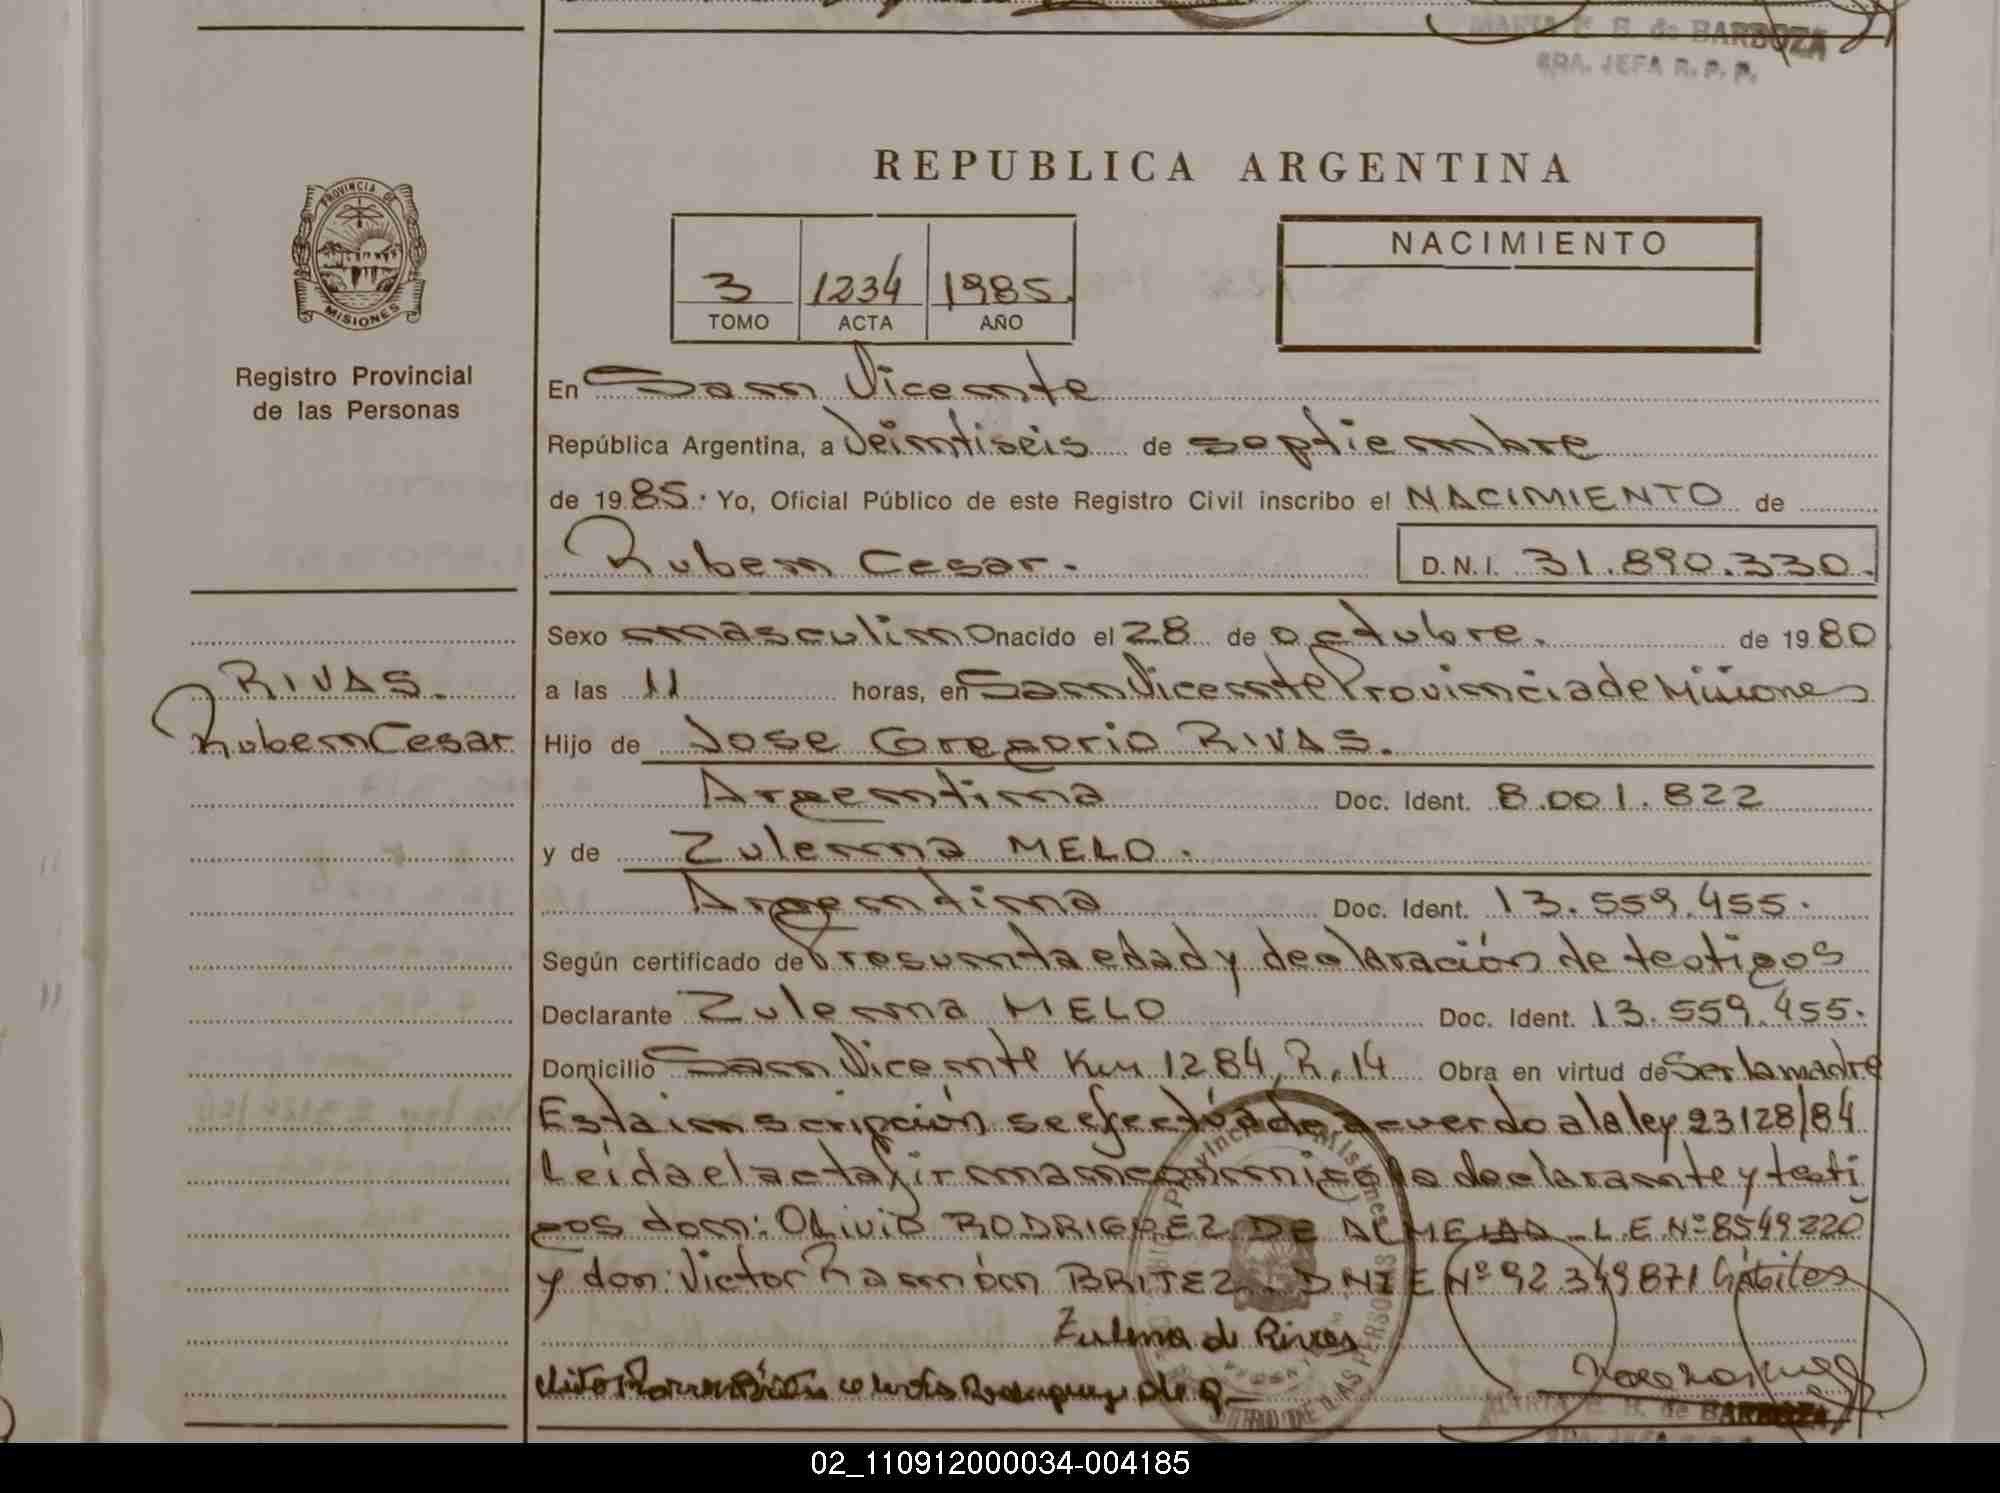 MARIA E. B. de BARBOZA
SRA. JEFA R. P. P.
REPUBLICA ARGENTINA
PROVINCIA DE
MISIONES
Registro Provincial
de las Personas
3 1234 1985.
TOMO ACTA AÑO
NACIMIENTO
En San Vicente
República Argentina, a Veintiseis de septiembre
de 1985. Yo, Oficial Público de este Registro Civil inscribo el NACIMIENTO de
Ruben Cesar. D.N.I. 31.890.330.
Sexo masculino nacido el 28 de octubre. de 1980
RIVAS.
Ruben Cesar
a las 11 horas, en San Vicente Provincia de Misiones
Hijo de Jose Gregorio RIVAS.
Argentina Doc. Ident. 8.001.822
y de Zulema MELO.
Argentina Doc. Ident. 13.559.455.
Según certificado de Presunta edad y declaración de testigos
Declarante Zulema MELO Doc. Ident. 13.559.455.
Domicilio San Vicente Km 1284, R. 14 Obra en virtud de Ser la madre
Esta inscripción se efectúa de acuerdo a la ley 23128/84
Leída el acta firman conmigo la declarante y testi
gos don: OLIVIO RODRIGUEZ DE ALMEIDA - L.E. Nº 8549220
y don: Victor Ramón BRITEZ. DNI E Nº 92.349871 hábiles
Zulema de Rivas
MARIA E. B. de BARBOZA
02_110912000034-004185